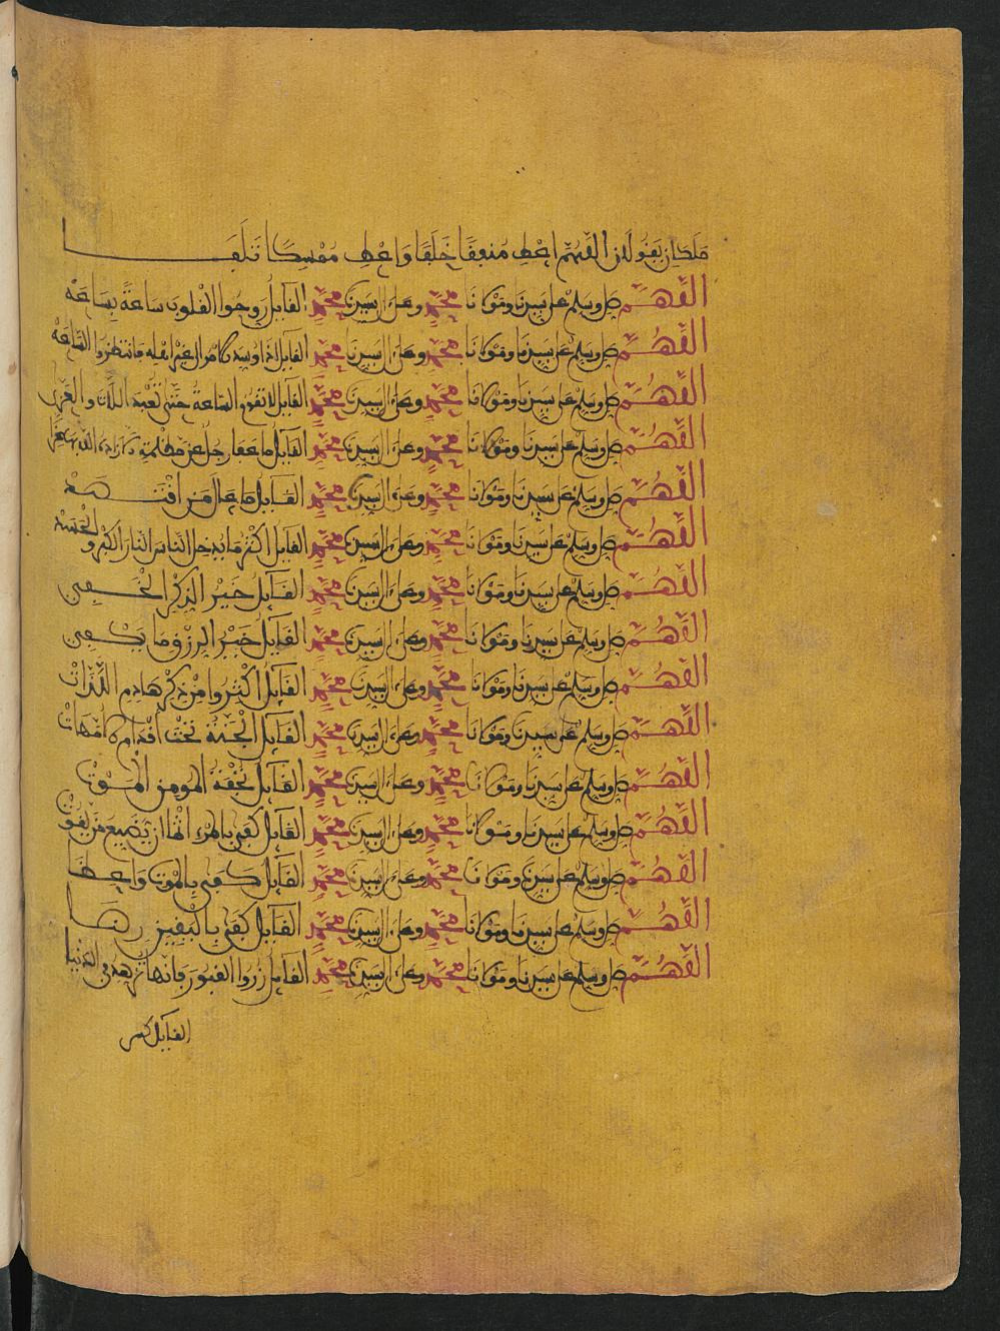 ملكان يقولان اللهم اعط منفقا خلفا واعط ممسكا تلفا
اللهم صل وسلم على سيدنا ومولانا محمد وعلى ال سيدنا محمد القايل روحوا القلوب ساعة بساعة
اللهم صل وسلم على سيدنا ومولانا محمد وعلى ال سيدنا محمد القايل اذا وسد الامر الى غير اهله فانتظروا الساعة
اللهم صل وسلم على سيدنا ومولانا محمد وعلى ال سيدنا محمد القايل لا تقوم الساعة حتى تعبد اللات والعزى
اللهم صل وسلم على سيدنا ومولانا محمد وعلى ال سيدنا محمد القايل ما عفا رجل عن مظلمة الا زاده الله بها عزا
اللهم صل وسلم على سيدنا ومولانا محمد وعلى ال سيدنا محمد القايل ما عال من اقتصد
اللهم صل وسلم على سيدنا ومولانا محمد وعلى ال سيدنا محمد القايل اكثر ما يدخل الناس النار الكبر والحسد
اللهم صل وسلم على سيدنا ومولانا محمد وعلى ال سيدنا محمد القايل خير الذكر الخفي
اللهم صل وسلم على سيدنا ومولانا محمد وعلى ال سيدنا محمد القايل خير الرزق ما يكفي
اللهم صل وسلم على سيدنا ومولانا محمد وعلى ال سيدنا محمد القايل اكثروا من ذكر هادم اللذات
اللهم صل وسلم على سيدنا ومولانا محمد وعلى ال سيدنا محمد القايل الجنة تحت اقدام الامهات
اللهم صل وسلم على سيدنا ومولانا محمد وعلى ال سيدنا محمد القايل تحفة المومن الموت
اللهم صل وسلم على سيدنا ومولانا محمد وعلى ال سيدنا محمد القايل كفى بالمرء اثما ان يضيع من يقوت
اللهم صل وسلم على سيدنا ومولانا محمد وعلى ال سيدنا محمد القايل كفى بالموت واعظا
اللهم صل وسلم على سيدنا ومولانا محمد وعلى ال سيدنا محمد القايل كفى باليقين
اللهم صل وسلم على سيدنا ومولانا محمد وعلى ال سيدنا محمد القايل زوروا القبور فانها تزهد في الدنيا
القايل